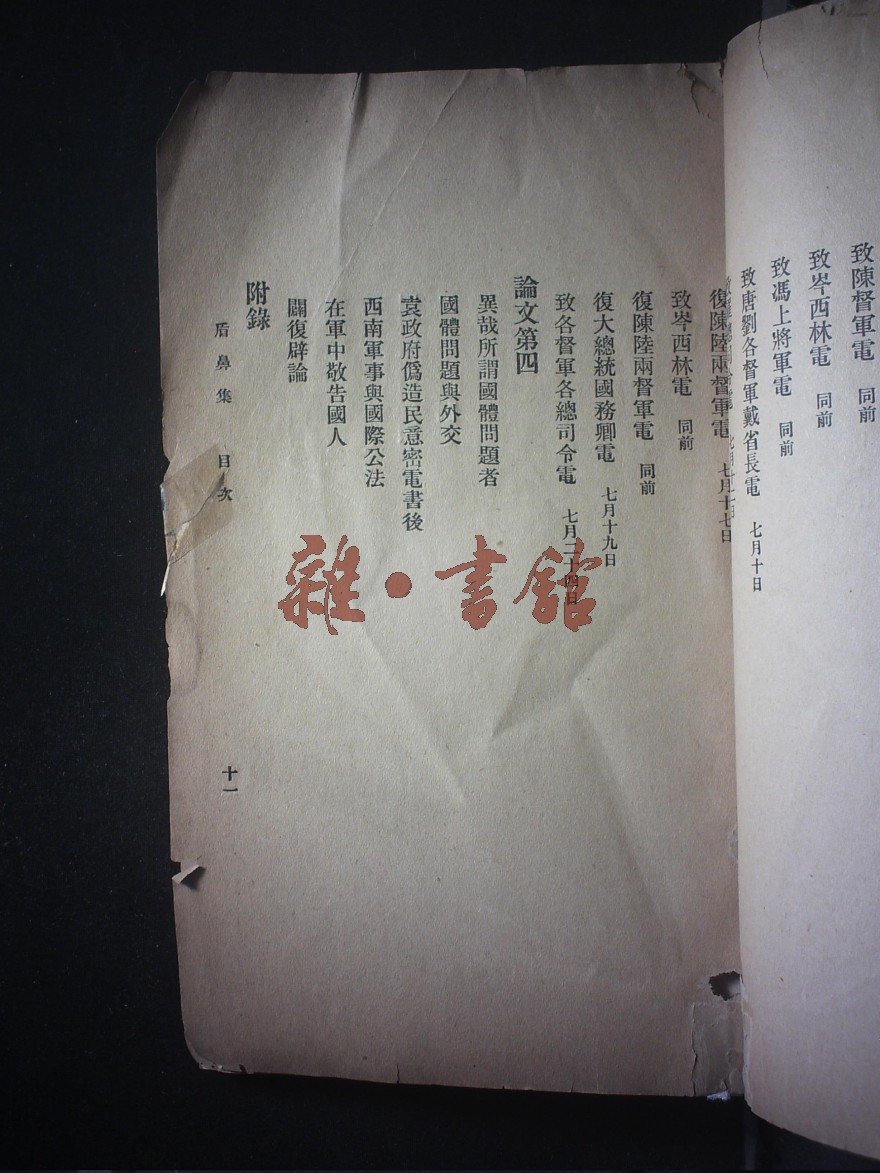 致陳督軍電 同前
致岑西林電 同前
致馮上將軍電 同前
致唐劉各督軍戴省長電 七月十日
復陳陸兩督軍電 七月十七日
致岑西林電 同前
復陳陸兩督軍電 同前
復大總統國務卿電 七月十九日
致各督軍各總司令電 七月二十四日
論文第四
異哉所謂國體問題者
國體問題與外交
袁政府僞造民意密電書後
西南軍事與國際公法
在軍中敬告國人
闢復辟論
附錄
盾鼻集 目次
十一
雜·書館